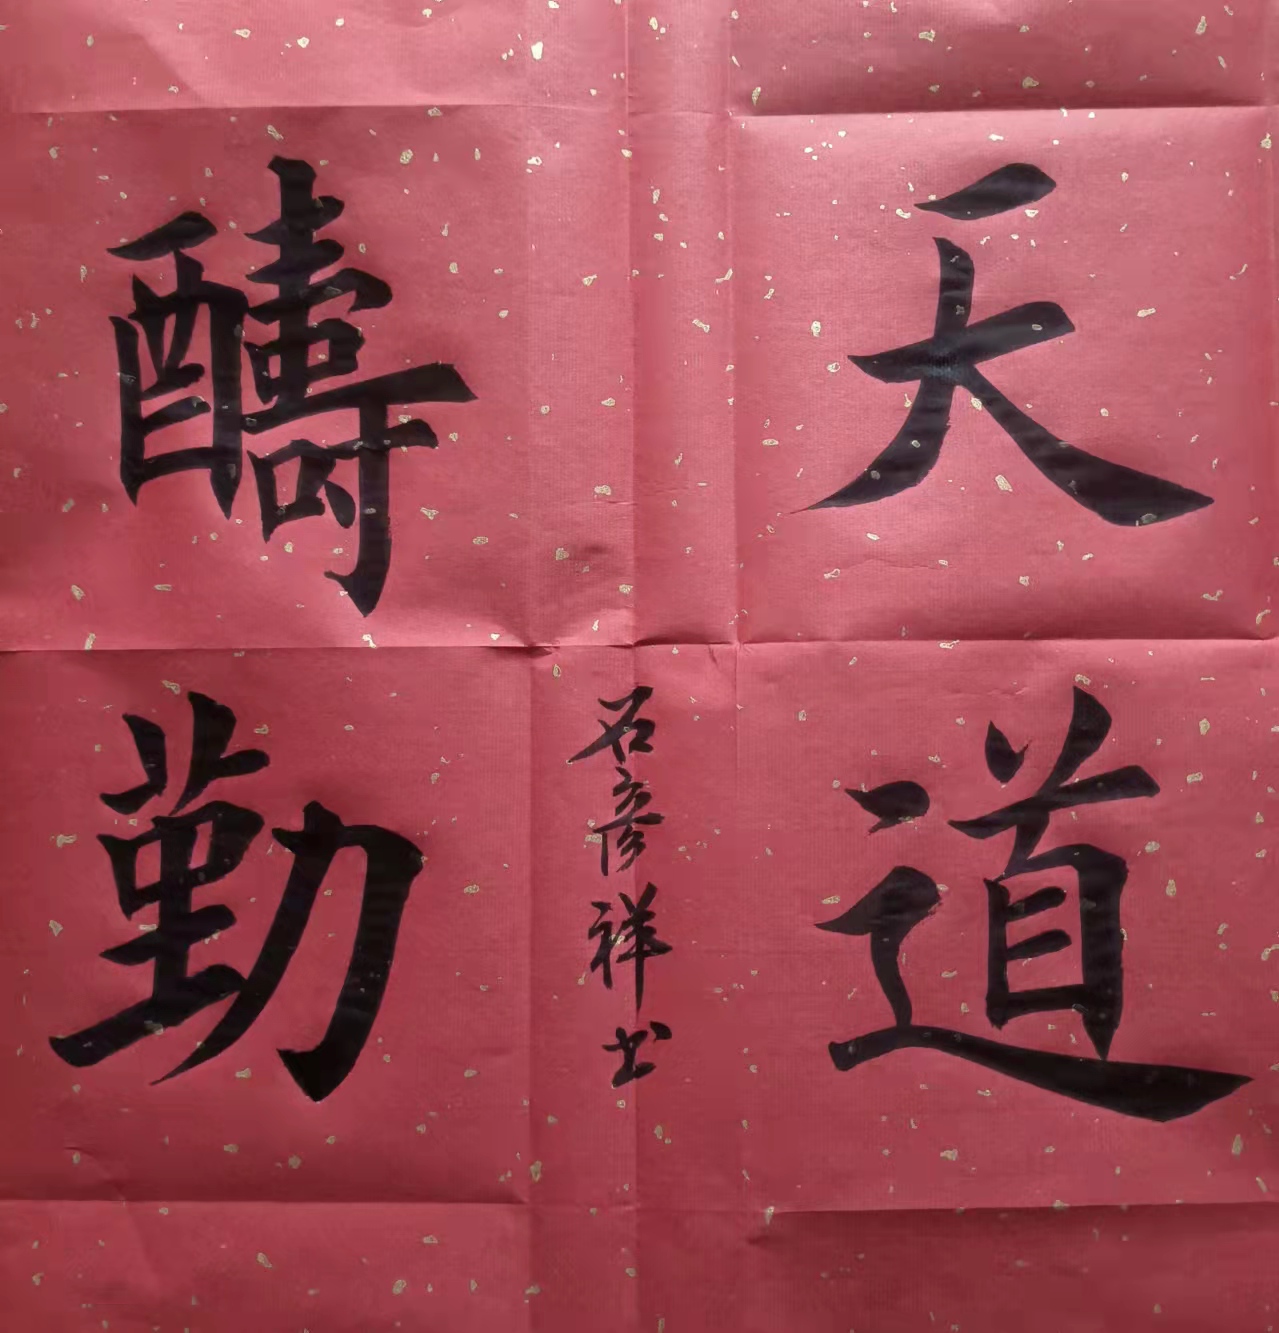 天道
醻勤
石彦祥书